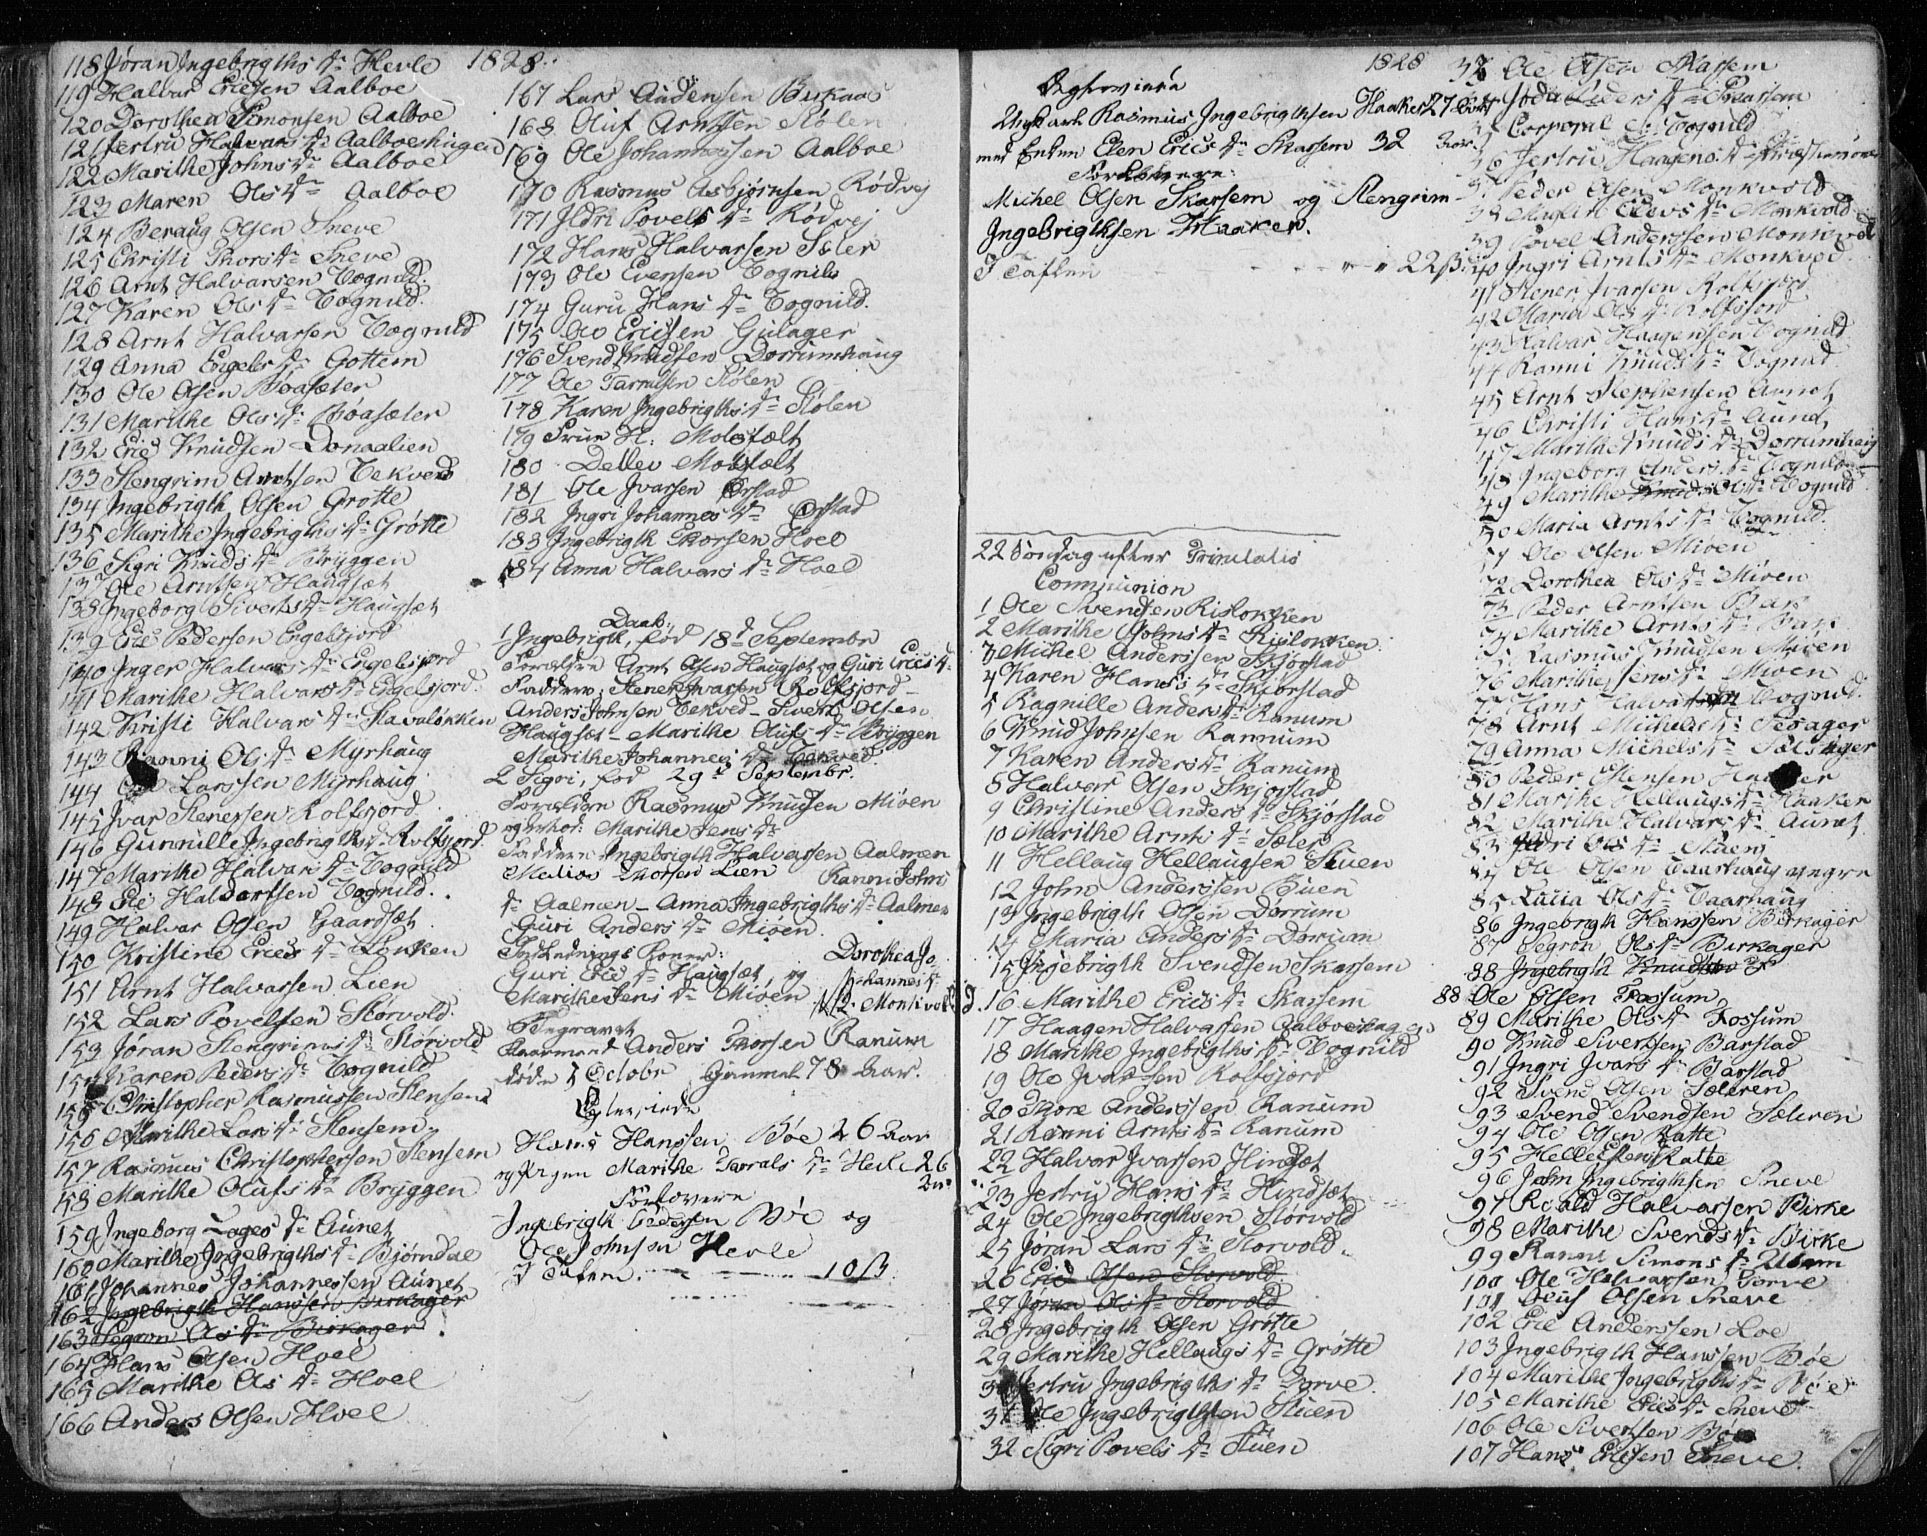 118 Jøran Ingebrigths dr Hevle
1828
119 Halvar Ericsen Aalboe
120 Dorothea Simonsen Aalboe
121 Jertru Halvars dr Aalboeshagen
122 Marithe Johns dr Aalboe
123 Maren Ols dr Aalboe
124 Beraug Olsen Sneve
125 Christi Thors dr Sneve
126 Arnt Halvarsen Vognild
127 Karen Ols dr Vognild
128 Arnt Halvarsen Vognild
129 Anna Engelb dr Gottem
130 Ole Olsen Bøasæter
131 Marithe Ols dr Bøasæter
132 Eric Knudsen Donaalien
133 Stengrim Arntsen Vekved
134 Ingebrigth Olsen Grøtte
135 Marithe Ingebrigths dr Grøtte
136 Sigri Knuds dr Bryggen
137 Ole Arntsen Haugsæt
138 Ingeborg Siverts dr Haugsæt
139 Eric Pedersen Engelsjord
140 Inger Halvars dr Engelsjord
141 Marithe Halvars dr Engelsjord
142 Kristi Halvars dr Stavaløkken
143 Ranni Ols dr Myrhaug
144 Larssen Myrhaug
145 Ivar Stenersen Rolfsjord
146 Gunnille Ingebrigths dr Rolfsjord
147 Marithe Halvars dr Vognild
148 Eric Haldorssen Vognild
149 Halvar Olsen Gaardsæt
150 Kristine Erics dr Løkken
151 Arnt Halvarsen Lien
152 Lars Povelsen Storvold
153 Jøran Stengrims dr Storvold
154 Karen Peders dr Vognild
155 Christopher Rasmussen Stensem
156 Marithe Lars dr Stensem
157 Rasmus Christophersen Stensem
158 Marithe Olufs dr Bryggen
159 Ingeborg Lages dr Aunet
160 Marithe Ingebrigths dr Bjørndal
161 Johannes Johannessen Aunet
162 Ingebrigth Hanssen Birkager
163 Segron Ols dr Birkager
164 Hans Olsen Hoel
165 Marithe Ols dr Hoel
166 Anders Olsen Hoel
167 Lars Andersen Birkaas
168 Oluf Arntsen Stølen
169 Ole Johannessen Aalboe
170 Rasmus Asbjørnsen Rødvej
171 Ildri Povels dr Rødvej
172 Hans Halvarsen Sæter
173 Ole Evensen Vognild
174 Guru Hans dr Vognild
175 Ole Ericsen Gulager
176 Svend Knudsen Dørrumhaug
177 Ole Taraldsen Stølen
178 Karen Ingebrigths dr Stølen
179 Frue H: Molsfælt
180 Detlev Molsfælt
181 Ole Ivarsen Ørstad
182 Ingri Johannes dr Ørstad
183 Ingebrigth Thorsen Hoel
184 Anna Halvars dr Hoel
Daab:
1 Ingebrigth, fød 18d Septembr
Forældre Arnt Olsen Haugset og Guri Erics dr
Faddere: Stener Ivarsen Rolfsjord
Anders Johnsen Vekved – Sivert Olsen
Haugset – Marithe Olufs dr Bryggen
Marithe Johannes dr Vekved
2 Sigri, fød 29d Septembr.
Forældre Rasmus Knudsen Miøen
og Marithe Jens dr
Faddere Ingebrigth Halvarsen Aalmen
Thorsen Lien Ranni Johns
dr Aalmen – Anna Ingebrigths dr Aalmen
Guri Anders dr Miøen
Indlednings Koner:
Dorothea Jo
Guri Erics dr Haugsæt, og
hannes dr
Marithe Jens dr Miøen
Monkvold
Begravet
Gaarmand Anders Thorsen Ranum
døde 7 Octobr Gammel 78 Aar.
Copulerede
Hans Hanssen Bøe 26 Aar
og Pigen Marithe Taralds dr Hevle 26
Aar
Forlovere
Ingebrigth Pedersen Bøe og
Ole Johnsen Hevle
I Taflen 10 ß
1828
Ungkarl Rasmus Ingebrigthsen Haaker 27 Aar
med Enken Elen Erics dr Skarsem 32 Aar
Forlovere:
Michel Olsen Skarsem og Stengrim
Ingebrigthsen Haaker.
I Taflen 22 ß
22 Søndag efter Trinitatis
Communion
1 Ole Svendsen Risløkken
2 Marithe Johns dr Risløkken
3 Michel Anderssen Skjørstad
4 Karen Hans dr Skjørstad
5 Ragnille Anders dr Ranum
6 Knud Johnsen Rannum
7 Karen Anders dr Ranum
8 Halvar Olsen Skjørstad
9 Christine Anders dr Skjørstad
10 Marithe Arnts dr Sæter
11 Hellaug Hellaugsen Stuen
12 John Anderssen Buen
13 Ingebrigth Olsen Dørrum
14 Maria Anders dr Dørrum
15 Ingebrigth Svendsen Skarsem
16 Marithe Erics dr Skarsem
17 Haagen Halvarsen Aalboeshagen
18 Marithe Ingebrigths dr Vognild
19 Ole Ivarsen Rolfsjord
20 Thore Anderssen Ranum
21 Ranni Arnts dr Ranum
22 Halvor Ivarsen Hindsæt
23 Jertru Hans dr Hindsæt
24 Ole Ingebrigthsen Storvold
25 Jøran Lars dr Storvold
26 Eric Olsen Storvold
27 Jøran Ols dr Storvold
28 Ingebrigth Olsen Grøtte
29 Marithe Hellaugs dr Grøtte
30 Jertru Ingebrigths dr Torve
31 Ole Ingebrigthsen Stuen
32 Sigri Povels dr Stuen
33 Ole Olsen Skarsem
Peders dr Skarsem
35 Corporal Vognild
36 Jertru Haagens dr
37 Peder Olsen Monkvold
38 Marith Elevs dr Monkvold
39 Povel Anderssen Monkvold
40 Ingri Arnts dr Monkvold
41 Stener Ivarsen Rolfsjord
42 Maria Ols dr Rolfsjord
43 Halvar Haagensen Vognild
44 Ranni Knuds dr Vognild
45 Arnt Stephensen Aunet
46 Christi Hans dr Aunet
47 Marithe Knuds dr Dørrumhaug
48 Ingeborg Anders dr Vognild
49 Marithe Knuds Ols dr Vognild
50 Maria Arnts dr Vognild
71 Ole Olsen Miøen
72 Dorothea Ols dr Miøen
73 Peder Arntsen Bak
74 Marithe Arnts dr Bak
75 Rasmus Knudsen Miøen
76 Marithe Jens dr Miøen
77 Hans Halvarsen Vognild
78 Arnt Michels dr Sesager
79 Anna Michels dr Sæsager
80 Peder Estensen Haaker
81 Marithe Hellaugs dr Haaker
82 Marithe Halvars dr Aunet
83 Ildri Ols dr Stuen
84 Ole Olsen Vaarhaug yngre
85 Lucia Ols dr Vaarhaug
86 Ingebrigth Hanssen Birkager
87 Segron Ols dr Birkager
88 Ingebrigth Knudsen
88 Ole Olsen Fossum
89 Marithe Ols dr Fossum
90 Knud Sivertsen Bårstad
91 Ingri Ivars dr Bårstad
92 Svend Olsen Sæteren
93 Svend Svendsen Sæteren
94 Ole Olsen Ratte
95 Helle Estens Ratte
96 John Ingebrigthsen Sneve
97 Roald Halvarsen Birke
98 Marithe Svends dr Birke
99 Ranni Simons dr Utbem
100 Ole Halvarsen Torve
101 Oluf Olsen Sneve
102 Eric Anderssen Loe
103 Ingebrigth Hanssen Bøe
104 Marithe Ingebrigths dr Bøe
105 Marithe Erics dr Sneve
106 Ole Sivertsen Bøe
107 Hans Ericsen Sneve